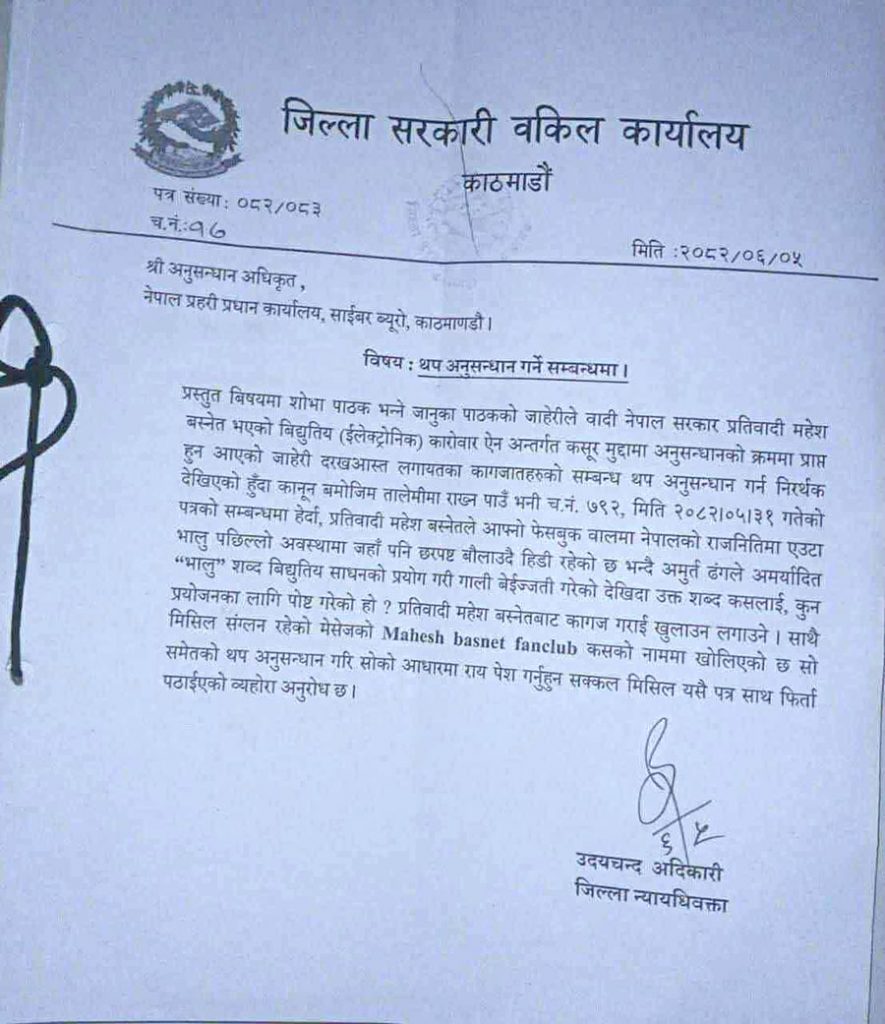 जिल्ला सरकारी वकिल कार्यालय
काठमाडौं
पत्र संख्या: ०८२/०८३
च.नं.:१७
मिति :२०८२/०६/०५
श्री अनुसन्धान अधिकृत,
नेपाल प्रहरी प्रधान कार्यालय, साईबर ब्यूरो, काठमाण्डौ।
विषय : थप अनुसन्धान गर्ने सम्बन्धमा।
प्रस्तुत बिषयमा शोभा पाठक भन्ने जानुका पाठकको जाहेरीले वादी नेपाल सरकार प्रतिवादी महेश
बस्नेत भएको बिद्युतिय (ईलेक्ट्रोनिक) कारोवार ऐन अन्तर्गत कसूर मुद्दामा अनुसन्धानको क्रममा प्राप्त
हुन आएको जाहेरी दरखआस्त लगायतका कागजातहरुको सम्बन्ध थप अनुसन्धान गर्न निरर्थक
देखिएको हुँदा कानून बमोजिम तालेमीमा राख्न पाउँ भनी च.नं. ७९२, मिति २०८२।०५।३१ गतेको
पत्रको सम्बन्धमा हेर्दा, प्रतिवादी महेश बस्नेतले आफ्नो फेसबुक वालमा नेपालको राजनितिमा एउटा
भालु पछिल्लो अवस्थामा जहाँ पनि छरपष्ट बौलाउदै हिडी रहेको छ भन्दै अमुर्त ढंगले अमर्यादित
“भालु” शब्द बिद्युतिय साधनको प्रयोग गरी गाली बेईज्जती गरेको देखिदा उक्त शब्द कसलाई, कुन
प्रयोजनका लागि पोष्ट गरेको हो ? प्रतिवादी महेश बस्नेतबाट कागज गराई खुलाउन लगाउने । साथै
मिसिल संग्लन रहेको मेसेजको Mahesh basnet fanclub कसको नाममा खोलिएको छ सो
समेतको थप अनुसन्धान गरि सोको आधारमा राय पेश गर्नुहुन सक्कल मिसिल यसै पत्र साथ फिर्ता
पठाईएको व्यहोरा अनुरोध छ।
६/५
उदयचन्द अदिकारी
जिल्ला न्यायधिवक्ता